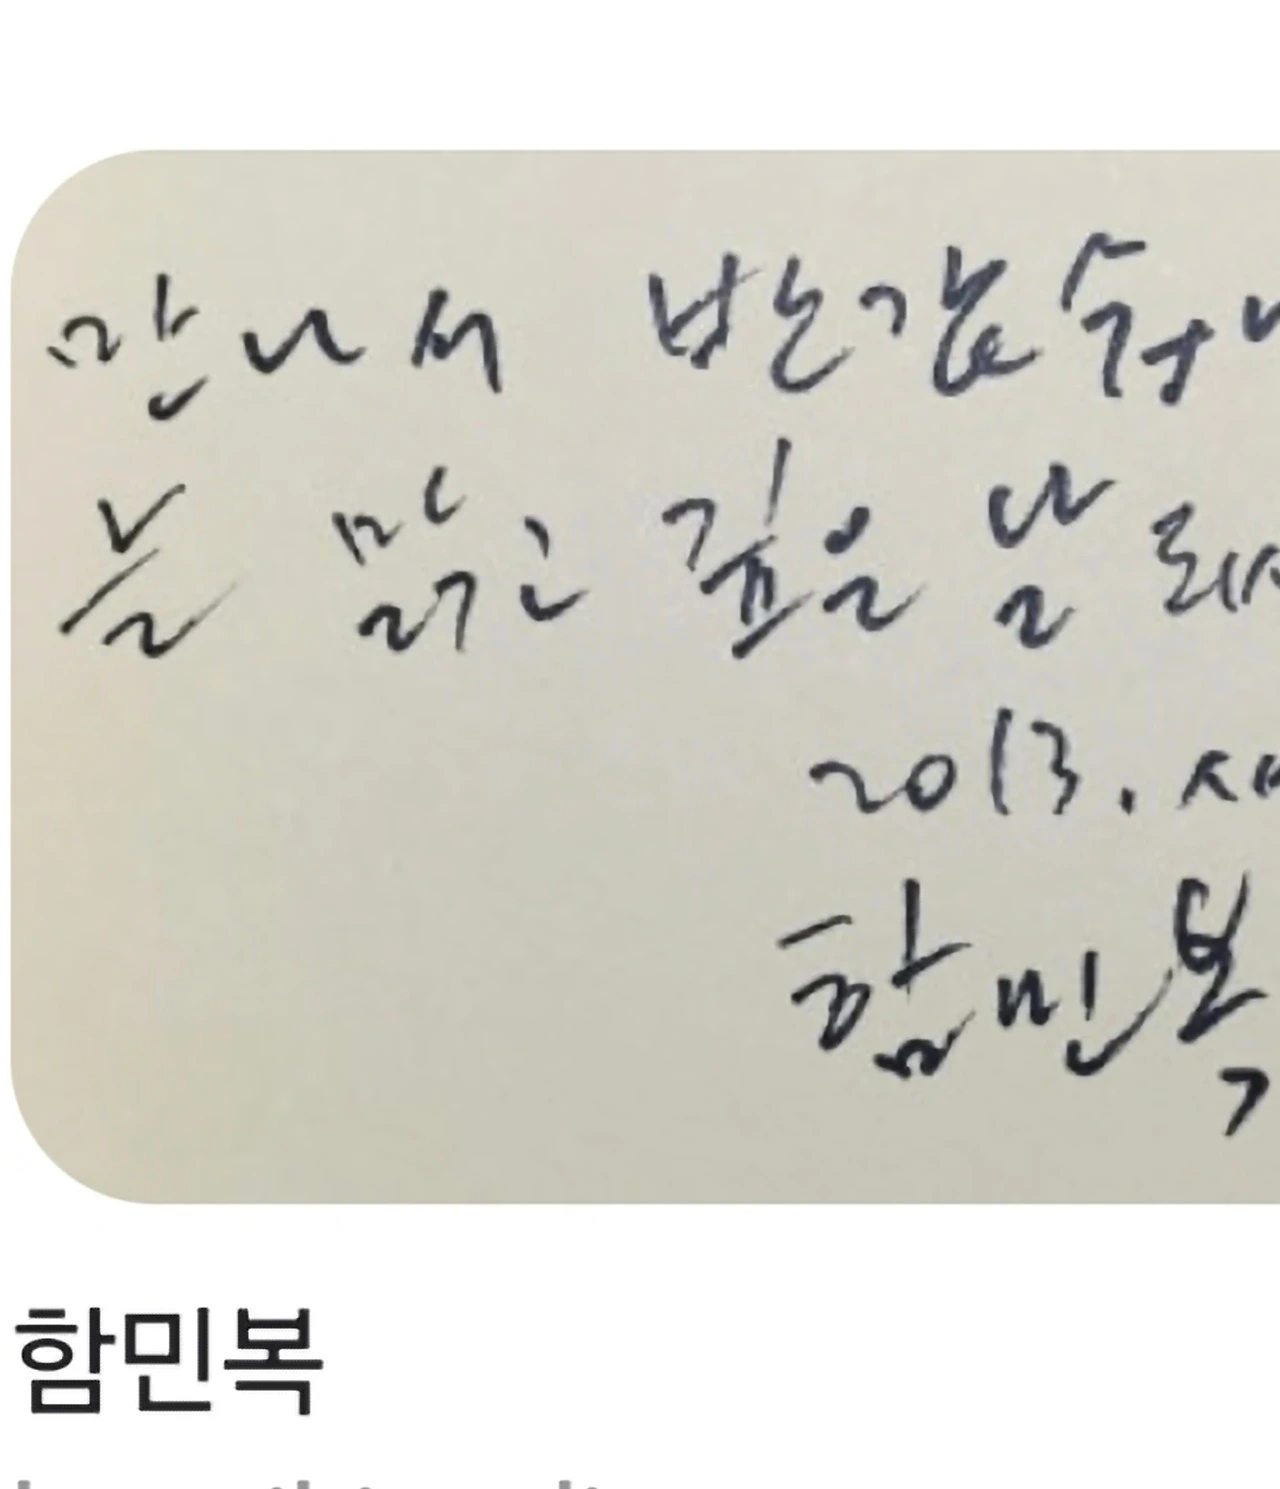 만나서 반갑습니
늘 맑고 깊은 날
2013. 새
함민복
함민복